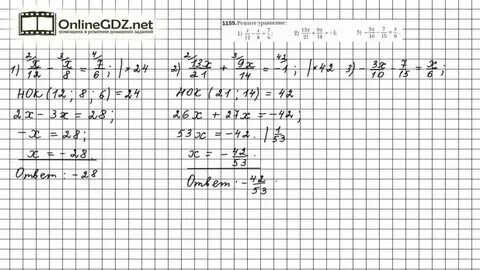 OnlineGDZ.net
помощник в решении домашних заданий
1155. Решите уравнение:
1) x/12 − x/8 = 7/6; 2) 13x/21 + 9x/14 = −1; 3) −3x/10 − 7/15 = x/6.
1) x/12 − x/8 = 7/6; | × 24
НОК (12; 8; 6) = 24
2x − 3x = 28;
−x = 28;
x = −28.
Ответ: −28
2) 13x/21 + 9x/14 = −1; | × 42
НОК (21; 14) = 42
26x + 27x = −42;
53x = −42. | 1/53
x = −42/53.
Ответ: −42/53.
3) −3x/10 − 7/15 = x/6;